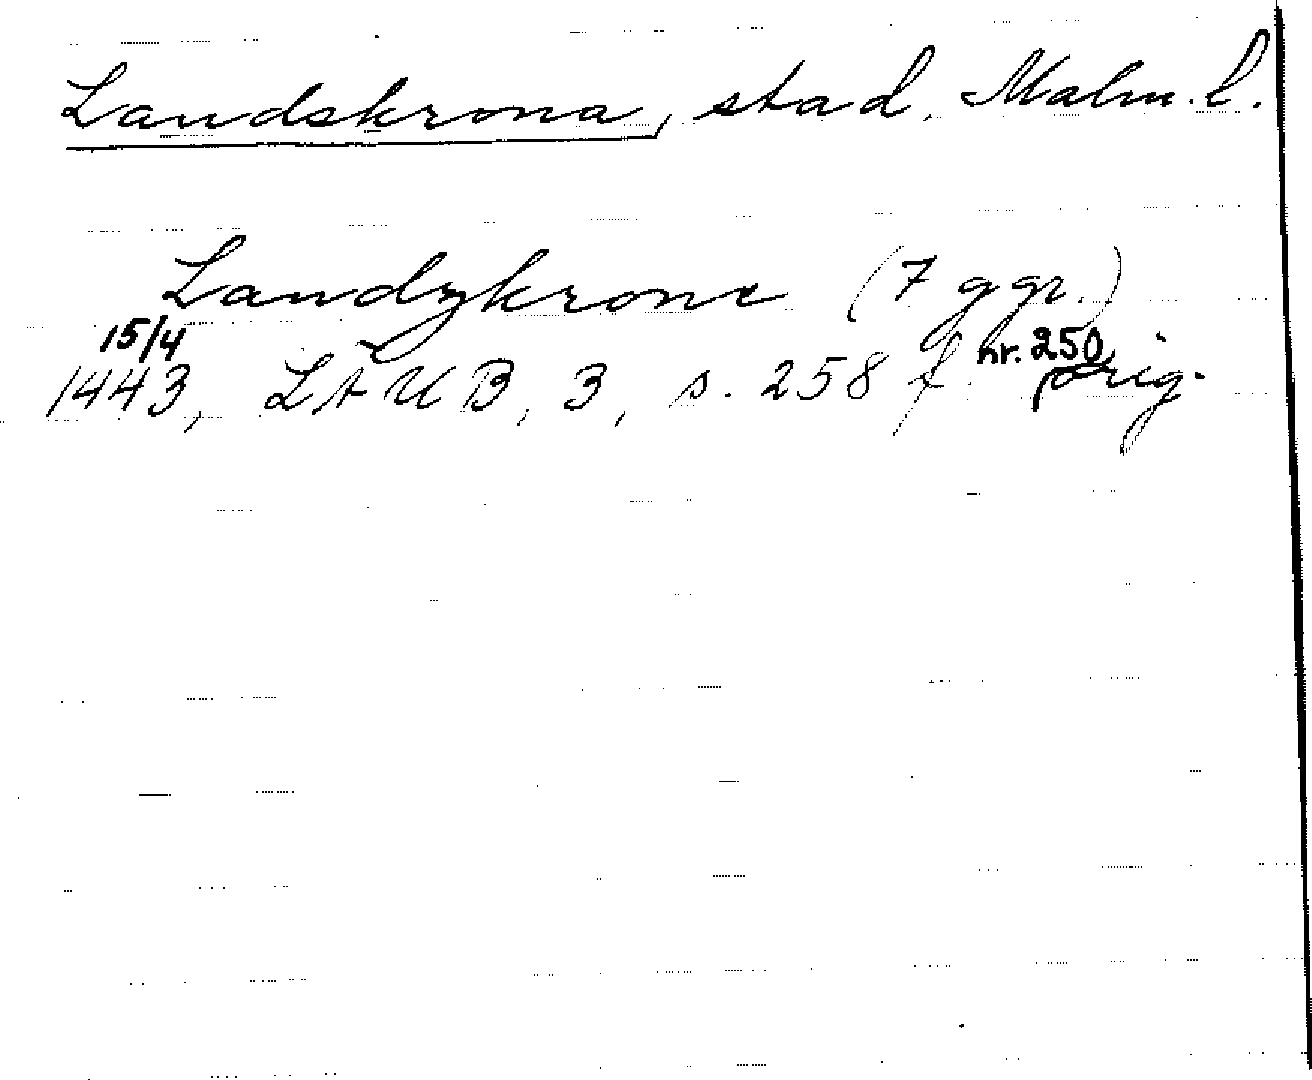 Landskrona, stad, Malm. l.
Landzkrone (7 ggr.)
15/4
1443, LÄUB, 3, s. 258 f. nr. 250, orig.